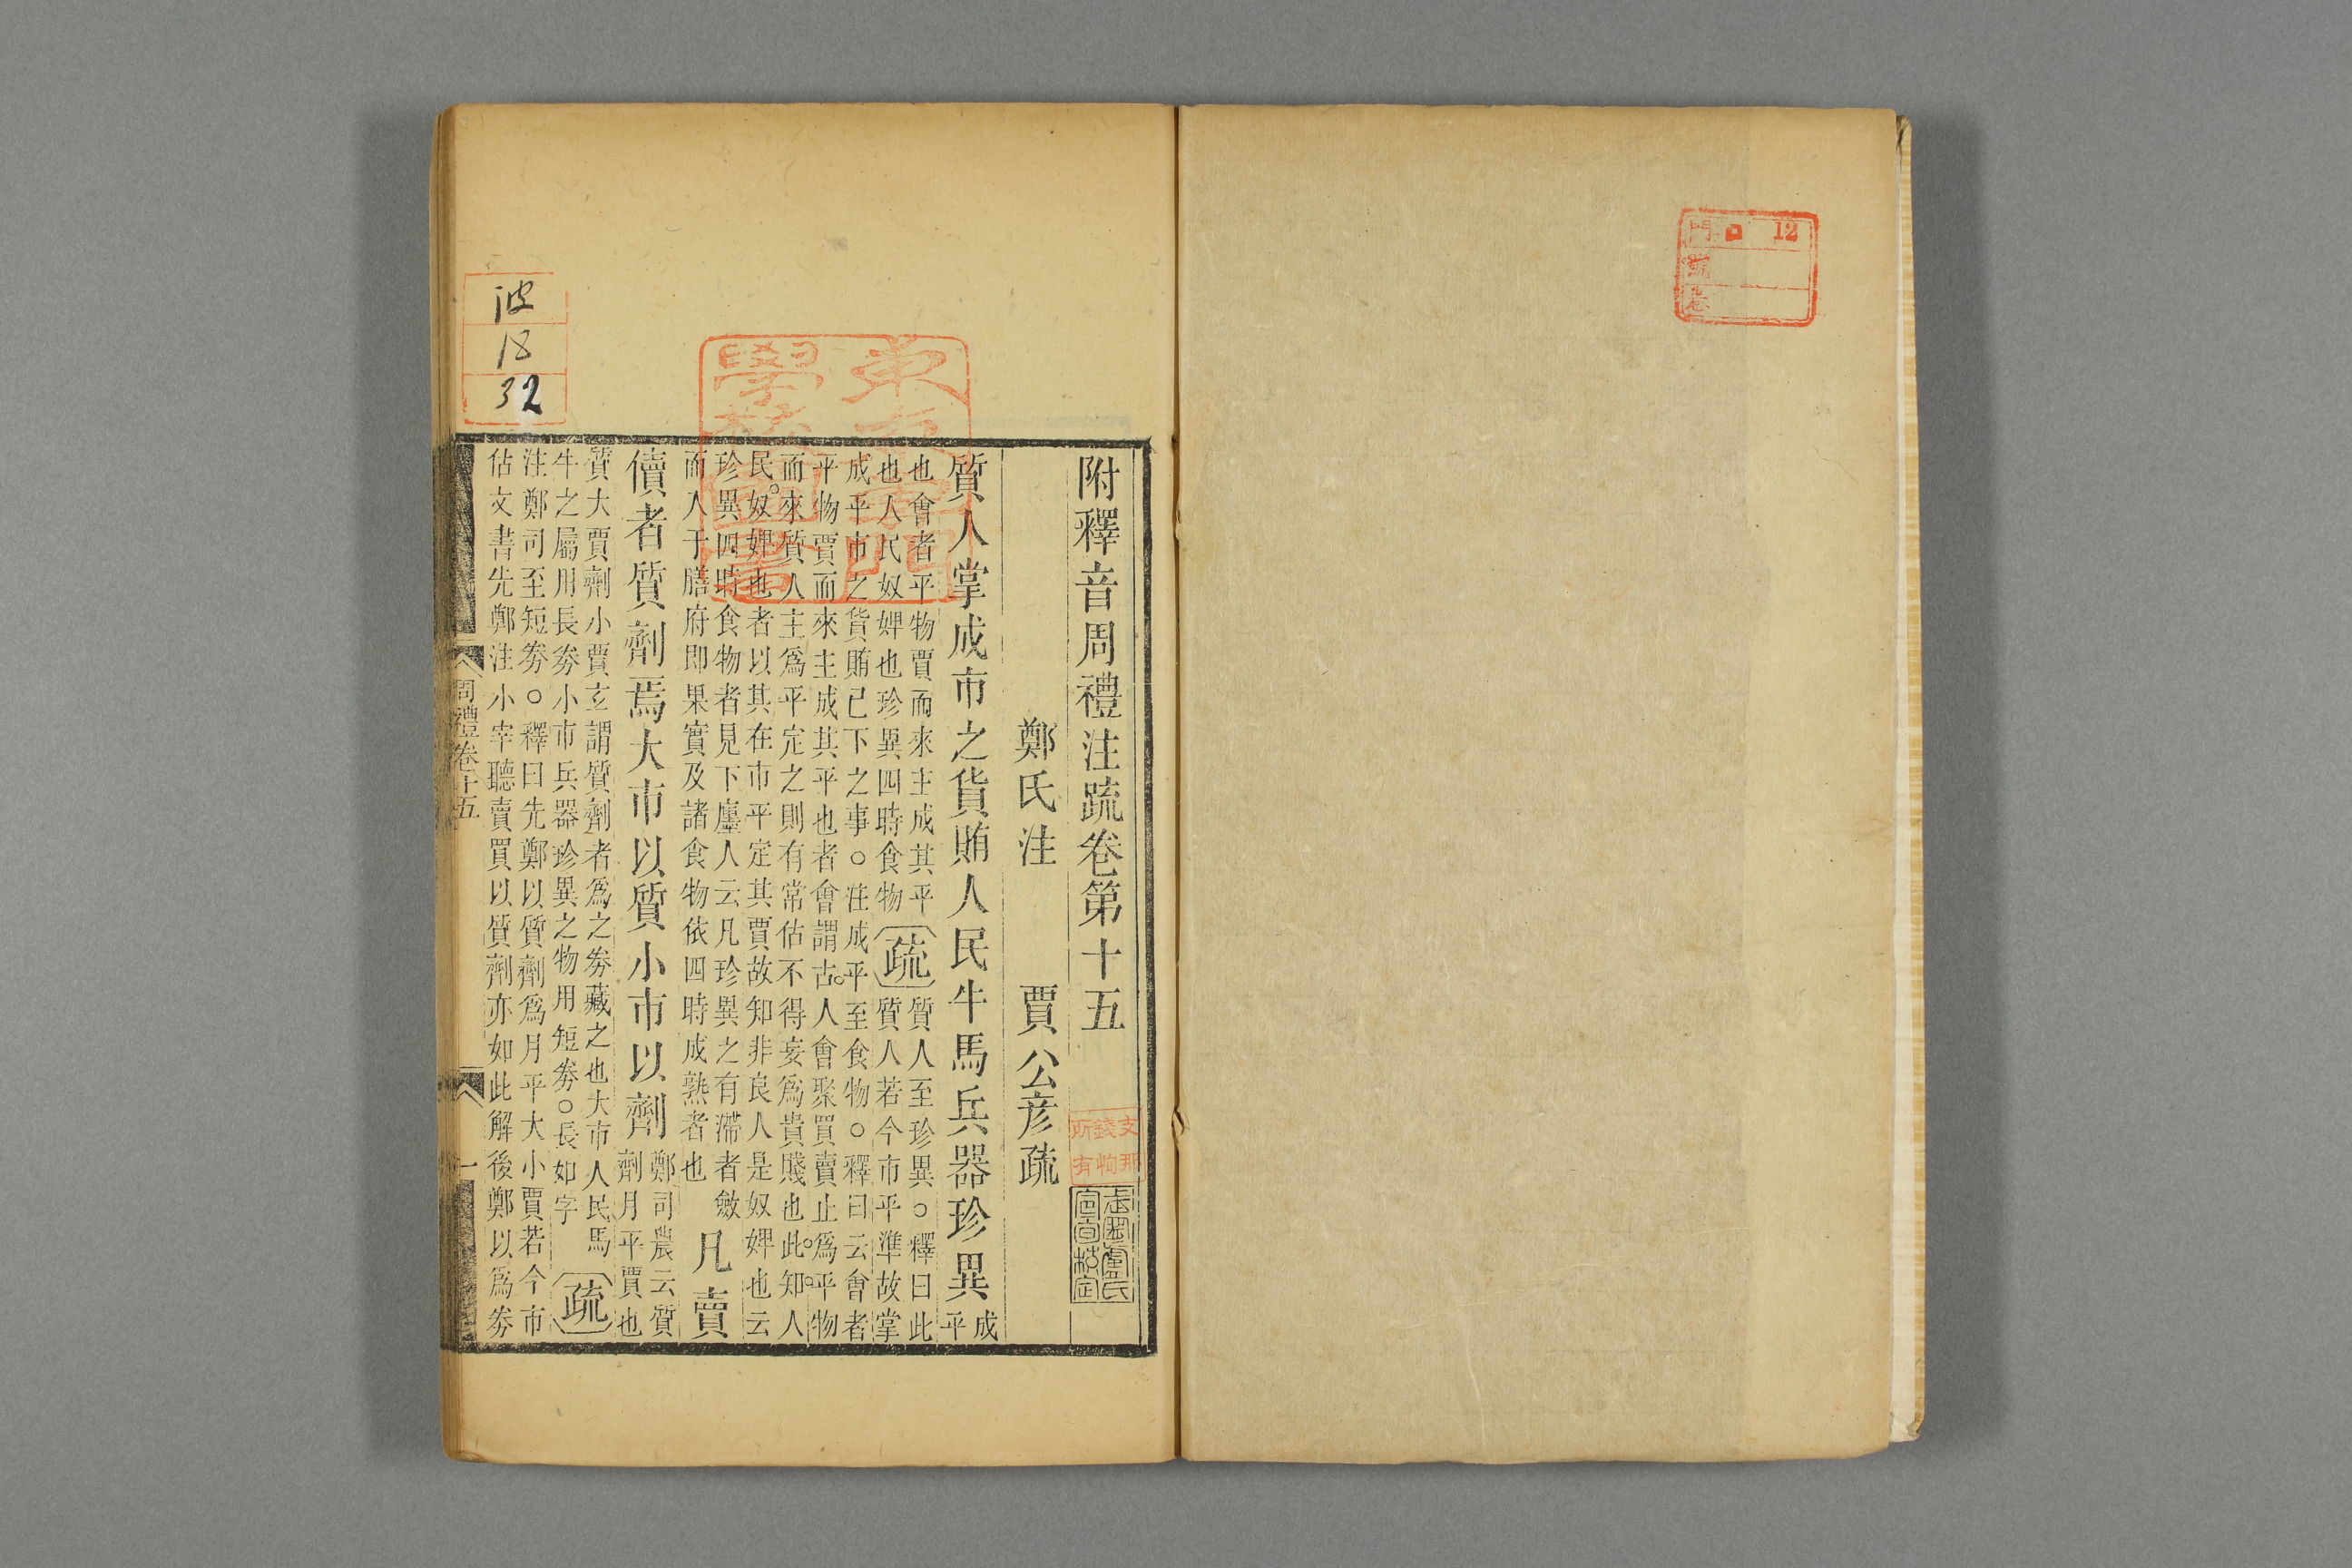 門 口 12
號
卷
附釋音周禮注疏卷第十五
鄭氏注 賈公彥疏
質人掌成市之貨賄人民牛馬兵器珍異成
平
也會者平物賈而來主成其平
也人民奴婢也珍異四時食物
疏
質人至珍異○釋曰此
質人若今市平準故掌
成平市之貨賄已下之事○注成平至食物○釋曰云會者
平物賈而來主成其平也者會謂古人會聚買賣止爲平物
而來質人主爲平定之則有常估不得妄爲貴賤也此知人
民奴婢也者以其在市平定其賈故知非良人是奴婢也云
珍異四時食物者見下廛人云凡珍異之有滯者斂
而入于膳府即果實及諸食物依四時成熟者也
凡賣
儥者質劑焉大市以質小市以劑
鄭司農云質
劑月平賈也
質大賈劑小賈玄謂質劑者爲之券藏之也大市人民馬
牛之屬用長券小市兵器珍異之物用短券○長如字
疏
注鄭司至短券○釋曰先鄭以質劑爲月平大小賈若今市
估文書先鄭注小宰聽賣買以質劑亦如此解後鄭以爲券
周禮卷十五
一
波
18
32
支那
錢恂
所有
武寧盧氏
宣旬校定